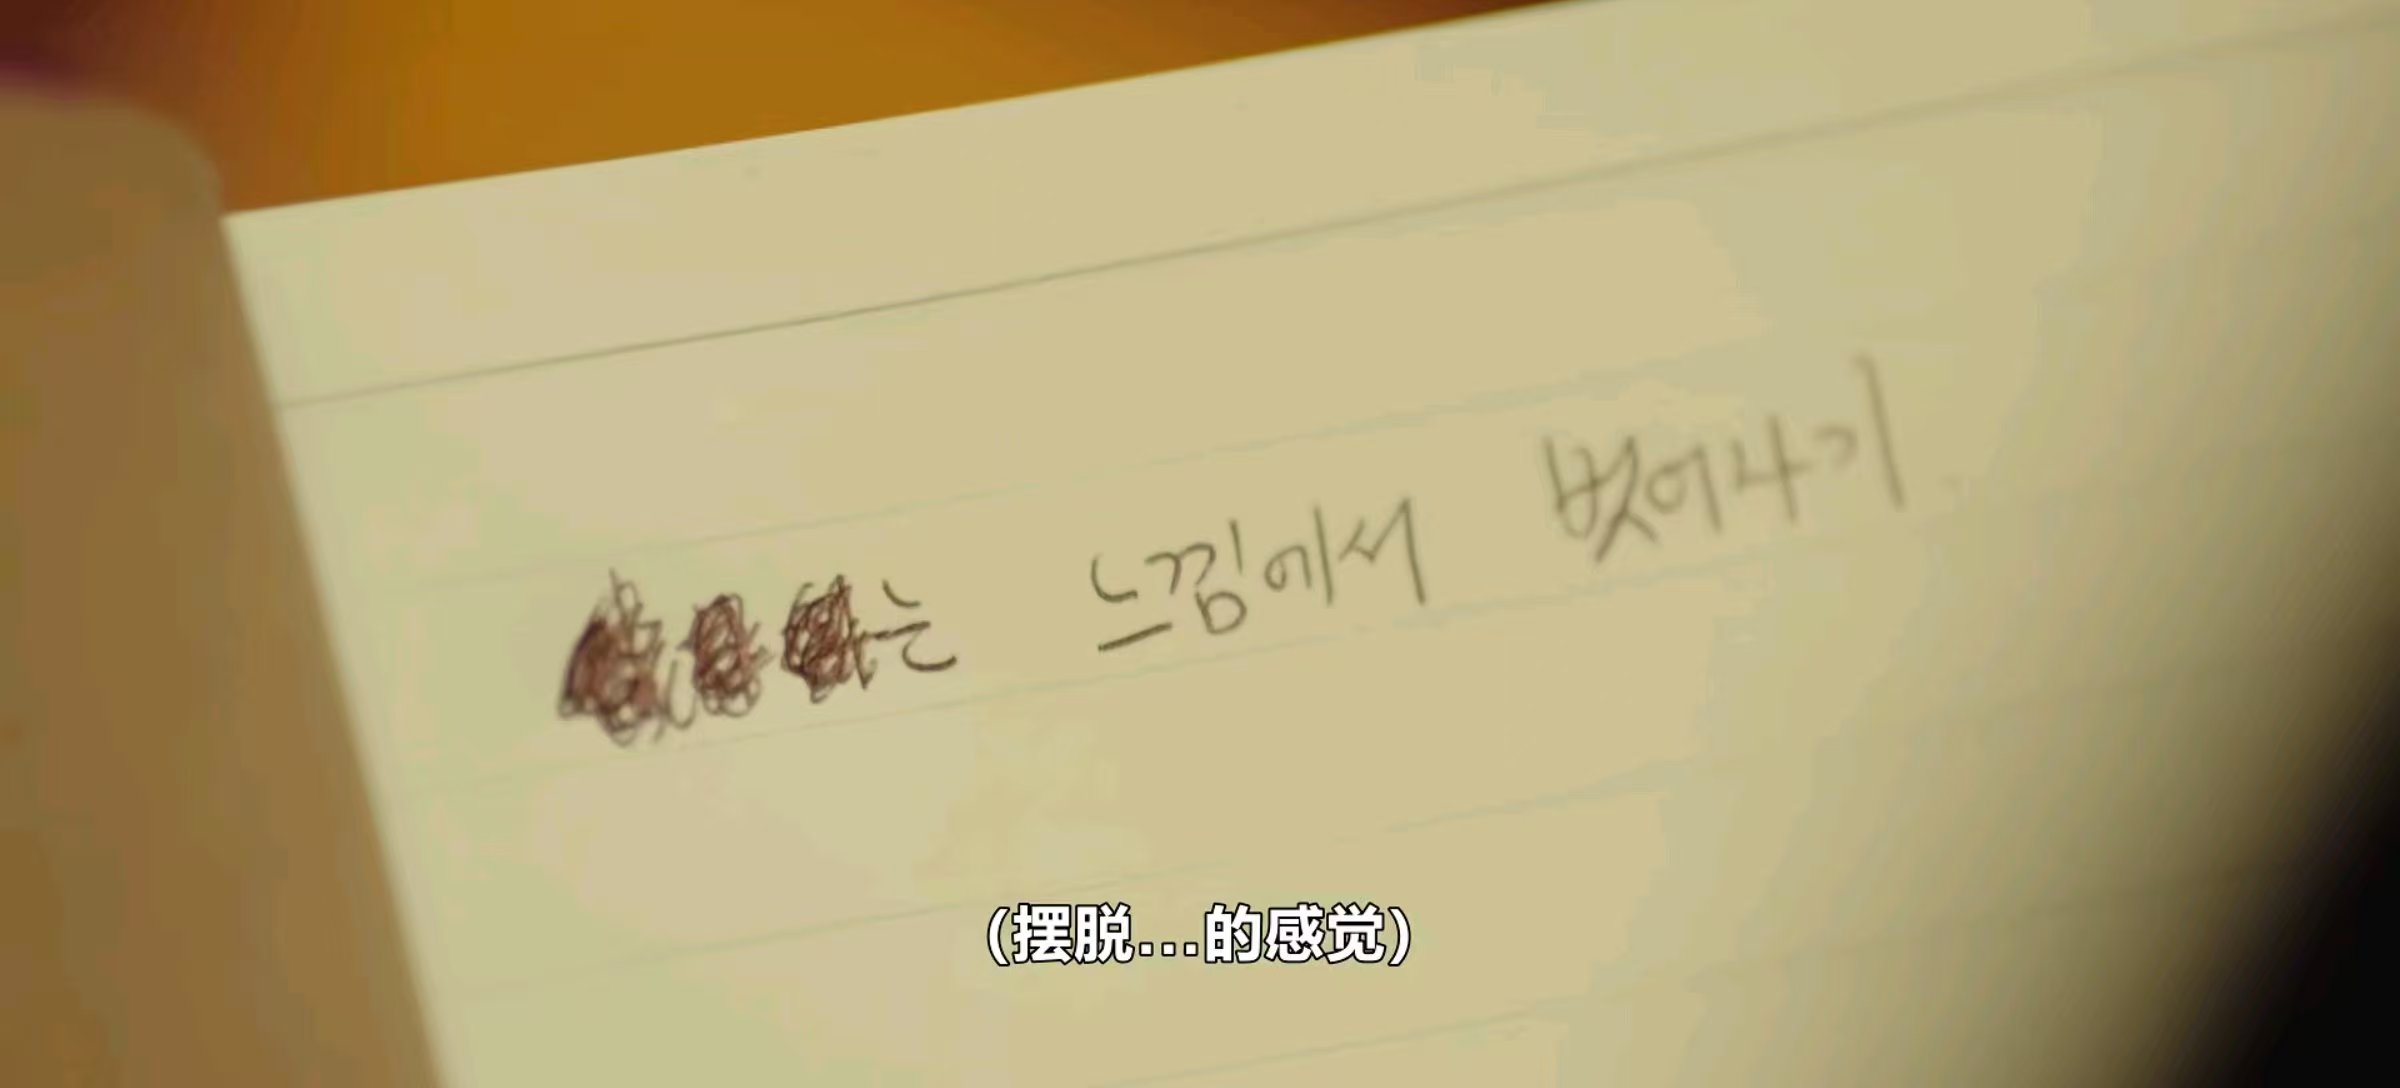 는 느낌에서 벗어나기
(摆脱...的感觉)